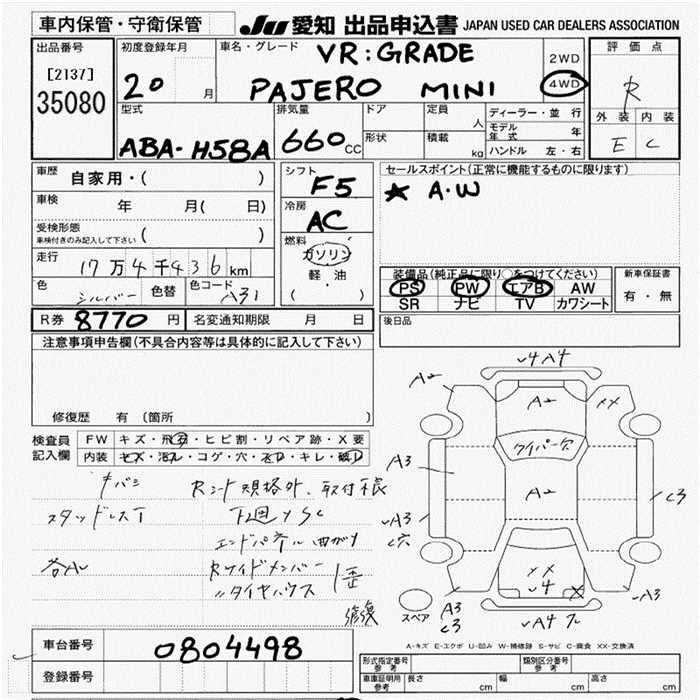 車内保管・守衛保管
JU 愛知 出品申込書 JAPAN USED CAR DEALERS ASSOCIATION
出品番号
[2137]
35080
初度登録年月
20 月
車名・グレード
VR:GRADE
PAJERO MINI
2WD
4WD
評価点
R
外装 内装
E C
型式
ABA・H58A
排気量
660 CC
ドア
形状
定員 人
積載 kg
ディーラー・並行
モデル年式 年
ハンドル 左・右
車歴 自家用・( )
車検 年 月( 日)
受検形態
車検付きのみ記入して下さい ( )
走行 17万4千436 km
色 シルバー 色替 色コード A31
シフト F5
冷房 AC
燃料
ガソリン
軽油
( ・ )
セールスポイント(正常に機能するものに限ります)
★ A・W
装備品(純正品に限り○をつけてください)
PS PW エアB AW
SR ナビ TV カワシート
新車保証書
有・無
R券 8770 円 名変通知期限 月 日
後日品
注意事項申告欄(不具合内容等は具体的に記入して下さい)
修復歴 有 (箇所
検査員記入欄
FW キズ・飛石・ヒビ割・リペア跡・X要
内装 キズ・汚レ・コゲ・穴・スレ・キレ・破レ
キバミ Rシート規格外、取付様
スタッドレスT 下廻ySC
エンドパネル曲がり
各AU Rサイドメンバー
〃タイヤハウス 歪
修復
√4 A4
A2
A2
XX
ワイパー欠
A3
A2
C3
√A3
C穴
XX
√4
X
√A3
スペア
A3
C3
√A4
A-キズ E-エクボ U-凹み W-補修跡 S-サビ C-腐食 XX-交換済
車台番号 0804498
登録番号
形式指定番号 参考
類別区分番号 参考
車庫証明用 参考
長さ cm 幅 cm 高さ cm